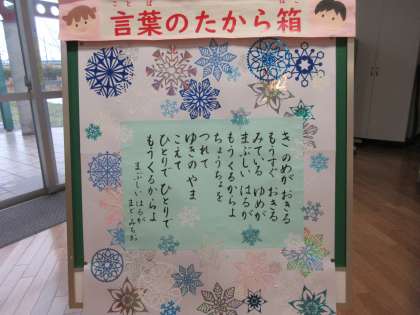 ことば
ばこ
言葉のたから箱
き のめが おきる
もうすぐ おきる
みている ゆめが
まぶしい はるが
もうくるからよ
ちょうちょを
つれて
ゆきの やま
こえて
ひとりで ひとりで
もうくるからよ
まぶしい はるが
まど・みちお